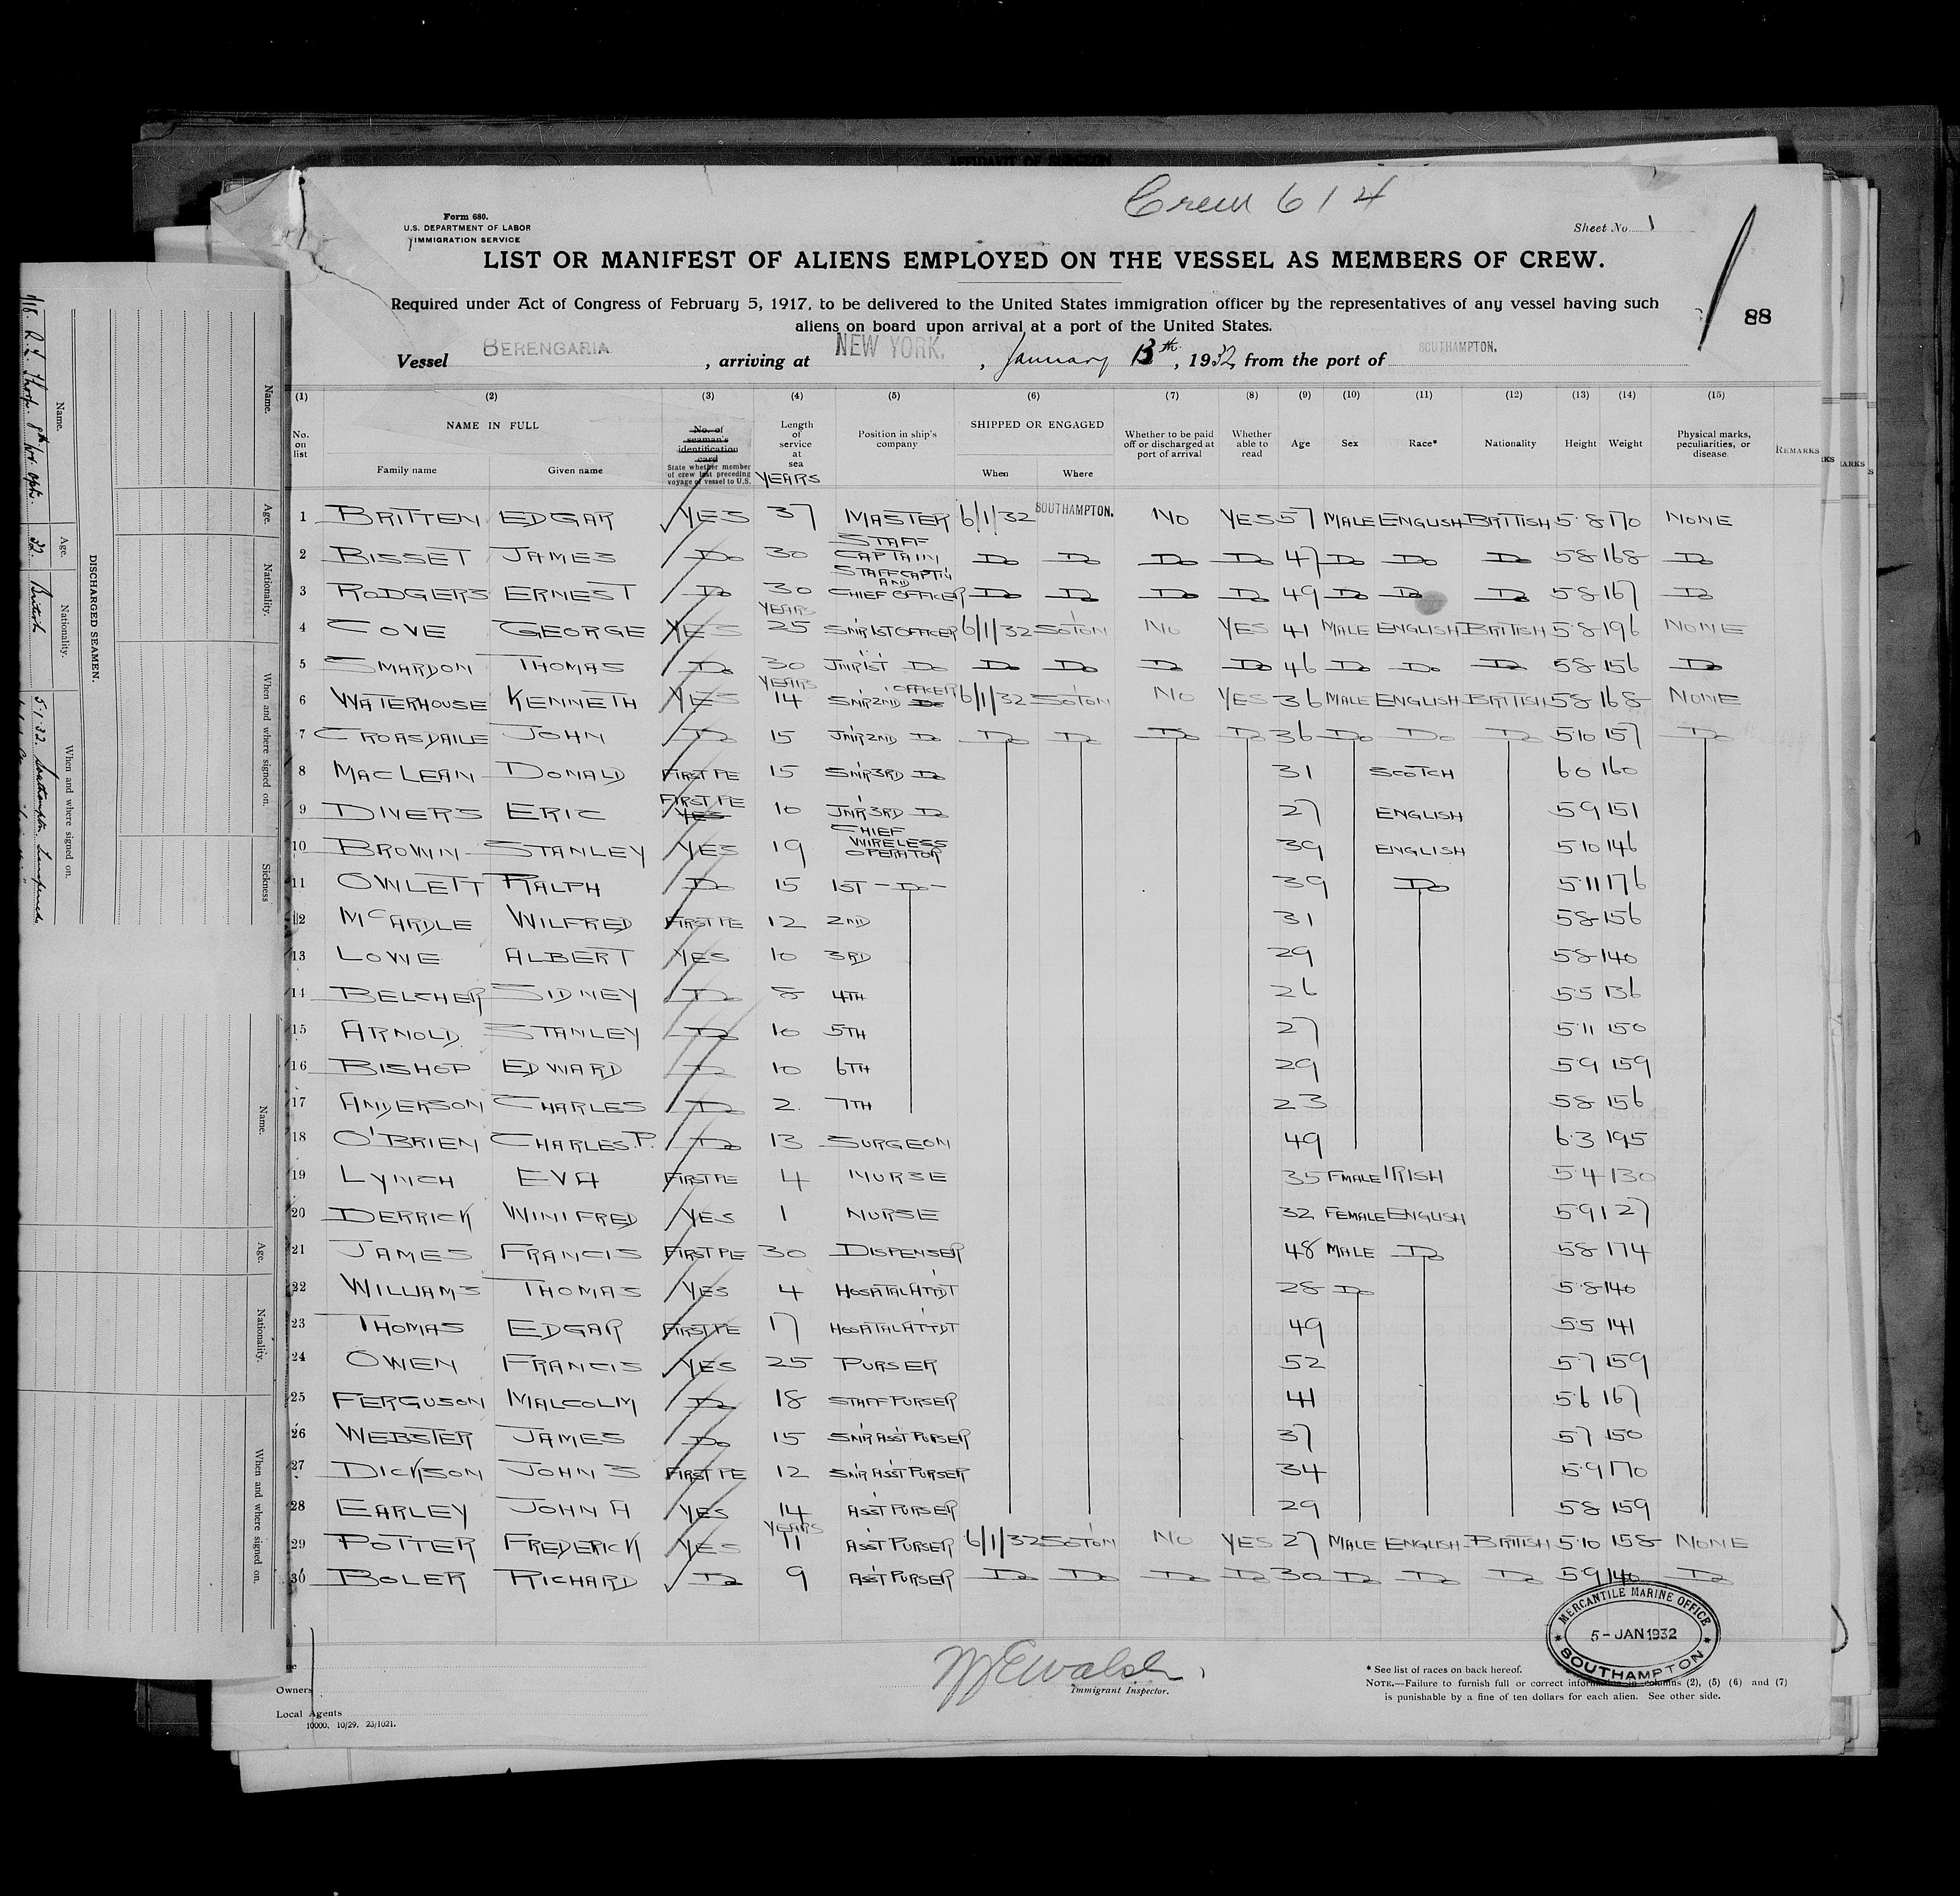 AFFIDAVIT OF SURGEON
Crew 614
Form 680.
U.S. DEPARTMENT OF LABOR
IMMIGRATION SERVICE
Sheet No. 1
LIST OR MANIFEST OF ALIENS EMPLOYED ON THE VESSEL AS MEMBERS OF CREW.
Required under Act of Congress of February 5, 1917, to be delivered to the United States immigration officer by the representatives of any vessel having such
aliens on board upon arrival at a port of the United States.
88
Vessel BERENGARIA, arriving at NEW YORK., January 13th, 1932 from the port of SOUTHAMPTON.
(1) (2) (3) (4) (5) (6) (7) (8) (9) (10) (11) (12) (13) (14) (15)
No. on list NAME IN FULL Family name Given name No. of seaman's identification card State whether member of crew last preceding voyage of vessel to U.S. Length of service at sea YEARS Position in ship's company SHIPPED OR ENGAGED When Where Whether to be paid off or discharged at port of arrival Whether able to read Age Sex Race* Nationality Height Weight Physical marks, peculiarities, or disease. REMARKS
1 BRITTEN EDGAR YES 37 MASTER 6/1/32 SOUTHAMPTON. NO YES 57 MALE ENGLISH BRITISH 5·8 170 NONE
2 BISSET JAMES Do 30 STAFF CAPTAIN Do Do Do Do 47 Do Do Do 58 168 Do
3 RODGERS ERNEST Do 30 STAFF CAPT'N AND CHIEF OFFICER Do Do Do Do 49 Do Do Do 58 167 Do
4 COVE GEORGE YES YEARS 25 SNR 1ST OFFICER 6/1/32 SOTON NO YES 41 MALE ENGLISH BRITISH 58 196 NONE
5 SMARDON THOMAS Do 30 JNR 1ST Do Do Do Do Do 46 Do Do Do 58 156 Do
6 WATERHOUSE KENNETH YES YEARS 14 SNR 2ND OFFICER Do 6/1/32 SOTON NO YES 36 MALE ENGLISH BRITISH 58 168 NONE
7 CROASDAILE JOHN Do 15 JNR 2ND Do Do Do Do Do 36 Do Do Do 510 157 Do
8 MACLEAN DONALD FIRST PE 15 SNR 3RD Do 31 SCOTCH 60 160
9 DIVERS ERIC FIRST PE YES 10 JNR 3RD Do 27 ENGLISH 59 151
10 BROWN STANLEY YES 19 CHIEF WIRELESS OPERATOR 39 ENGLISH 510 146
11 OWLETT RALPH Do 15 1ST - Do - 39 Do 5·11 176
12 McARDLE WILFRED FIRST PE 12 2ND 31 58 156
13 LOWE ALBERT YES 10 3RD 29 58 140
14 BELCHER SIDNEY Do 8 4TH 26 55 136
15 ARNOLD. STANLEY Do 10 5TH 27 5·11 150
16 BISHOP EDWARD Do 10 6TH 29 59 159
17 ANDERSON CHARLES Do 2. 7TH 23 58 156
18 O'BRIEN CHARLES. P. Do 13 SURGEON 49 6·3 195
19 LYNCH EVA FIRST PE 4 NURSE 35 FMALE IRISH 5·4 130
20 DERRICK WINIFRED YES 1 NURSE 32 FEMALE ENGLISH 59 127
21 JAMES FRANCIS FIRST PE 30 DISPENSER 48 MALE Do 58 174
22 WILLIAMS THOMAS YES 4 HOSPITAL ATTDT 28 Do 5·8 140
23 THOMAS EDGAR FIRST PE 17 HOSPITAL ATTDT 49 55 141
24 OWEN FRANCIS YES 25 PURSER 52 5·7 159
25 FERGUSON MALCOLM Do 18 STAFF PURSER 41 56 167
26 WEBSTER JAMES Do 15 SNR ASST PURSER 37 57 150
27 DICKSON JOHN S FIRST PE 12 SNR ASST PURSER 34 5·9 170
28 EARLEY JOHN A YES 14 ASST PURSER 29 58 159
29 POTTER FREDERICK YES YEARS 11 ASST PURSER 6/1/32 SOTON NO YES 27 MALE ENGLISH BRITISH 5·10 158 NONE
30 BOLER RICHARD Do 9 ASST PURSER Do Do Do Do 30 Do Do Do 59 140 Do
MERCANTILE MARINE OFFICE
5 - JAN 1932
SOUTHAMPTON
Walsh
Immigrant Inspector.
Owners
Local Agents
10000. 10/29. 23/1021.
* See list of races on back hereof.
NOTE.—Failure to furnish full or correct information in columns (2), (5) (6) and (7)
is punishable by a fine of ten dollars for each alien. See other side.
DISCHARGED SEAMEN.
Name. Age. Nationality. When and where signed on.
32. British 5.1.32. Southampton
Name. Age. Nationality. When and where signed on. Sickness
Name. Age. Nationality. When and where signed on.